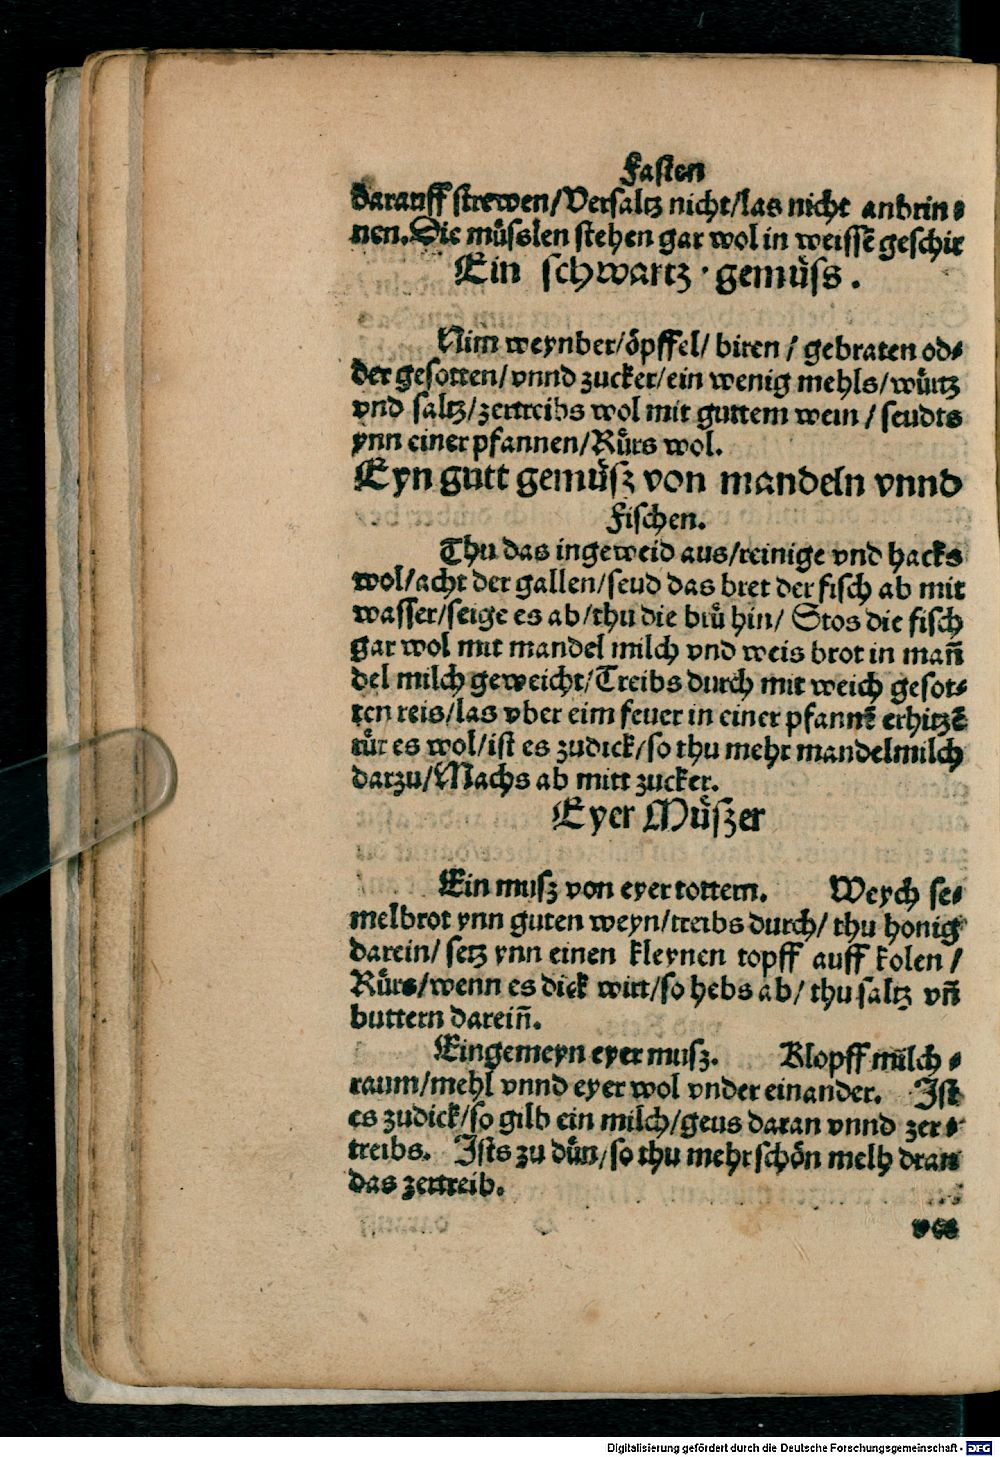 Fasten
darauff strewen/Versaltz nicht/las nicht anbrin⸗
nen. Die müſslen stehen gar wol in weissē geschir
Ein schwartz · gemüſs.
Nim weynber/öpffel/ biren / gebraten od⸗
der gesotten/vnnd zucker/ein wenig mehls/würtz
vnd saltz/zertreibs wol mit guttem wein / seudts
ynn einer pfannen/Rürs wol.
Eyn gutt gemüſz von mandeln vnnd
Fischen.
Thu das ingeweid aus/reinige vnd hacks
wol/acht der gallen/seud das bret der fisch ab mit
wasser/seige es ab/thu die brü hin/ Stos die fisch
gar wol mit mandel milch vnd weis brot in man̄
del milch geweicht/Treibs durch mit weich gesot⸗
ten reis/las vber eim feuer in einer pfannē erhitzē
rür es wol/ist es zudick/so thu mehr mandelmilch
darzu/Machs ab mitt zucker.
Eyer Müſzer
Ein muſz von eyertottern. Weych se⸗
melbrot ynn guten weyn/treibs durch/ thu honig
darein/ setz ynn einen kleynen topff auff kolen /
Rürs/wenn es dick wirt/so hebs ab/ thu saltz vn̄
buttern darein̄.
Eingemeyn eyer muſz. Klopff milch ⸗
raum/mehl vnnd eyer wol vnder einander. Ist
es zudick/so gilb ein milch/geus daran vnnd zer⸗
treibs. Ists zu dün/so thu mehr schön melh dran
das zertreib.
Digitalisierung gefördert durch die Deutsche Forschungsgemeinschaft - DFG